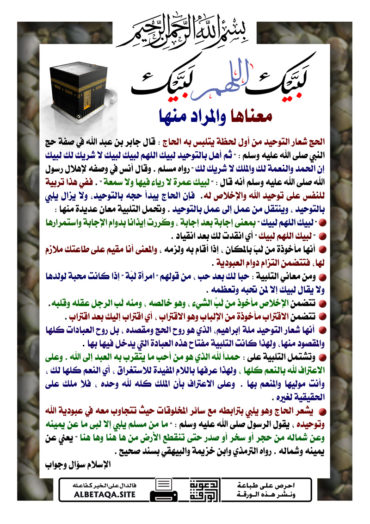 بسم الله الرحمن الرحيم
لبيك اللهم لبيك
معناها والمراد منها
الحج شعار التوحيد من أول لحظة يتلبس به الحاج : قال جابر بن عبد الله في صفة حج
النبي صلى الله عليه وسلم : - ثم أهل بالتوحيد لبيك اللهم لبيك لبيك لا شريك لك لبيك
إن الحمد والنعمة لك والملك لا شريك لك - رواه مسلم . وقال أنس في صفه لإهلال رسول
الله صلى الله عليه وسلم أنه قال : - لبيك عمرة لا رياء فيها ولا سمعة - . ففي هذا تربية
للنفس على توحيد الله والإخلاص له. فإن الحاج يبدأ حجه بالتوحيد، ولا يزال يلبي
بالتوحيد ، وينتقل من عمل إلى عمل بالتوحيد . وتحمل التلبية معان عديدة منها :
- لبيك اللهم لبيك - بمعنى إجابة بعد إجابة , وكررت إيذانا بدوام الإجابة واستمرارها
- لبيك اللهم لبيك - أي انقدت لك بعد انقياد .
أنها مأخوذة من لبّ بالمكان , إذا أقام به ولزمه , والمعنى أنا مقيم على طاعتك ملازم
لها, فتتضمن التزام دوام العبودية .
ومن معاني التلبية : حبا لك بعد حب , من قولهم - امرأة لبّة - إذا كانت محبة لولدها
ولا يقال لبيك إلا لمن تحبه وتعظمه .
تتضمن الإخلاص مأخوذ من لبّ الشيء , وهو خالصه , ومنه لب الرجل عقله وقلبه.
تتضمن الاقتراب مأخوذة من الإلباب وهو الاقتراب , أي اقتراب إليك بعد اقتراب .
أنها شعار التوحيد ملة إبراهيم, الذي هو روح الحج ومقصده , بل روح العبادات كلها
والمقصود منها, ولهذا كانت التلبية مفتاح هذه العبادة التي يدخل فيها بها .
وتشتمل التلبية على : حمدا لله الذي هو من أحب ما يتقرب به العبد إلى الله . وعلى
الاعتراف لله بالنعم كلها , ولهذا عرفها باللام المفيدة للاستغراق , أي النعم كلها لك ,
وأنت موليها والمنعم بها . وعلى الاعتراف بأن الملك كله لله وحده , فلا ملك على
الحقيقية لغيره .
يشعر الحاج وهو يلبي بترابطه مع سائر المخلوقات حيث تتجاوب معه في عبودية الله
وتوحيده . يقول الرسول صلى الله عليه وسلم : - ما من مسلم يلبي إلا لبى ما عن يمينه
وعن شماله من حجر أو شجر أو مدر حتى تنقطع الأرض من ها هنا وها هنا - يعني عن
يمينه وشماله . رواه الترمذي وابن خزيمة والبيهقي بسند صحيح .
الإسلام سؤال وجواب
احرص على طباعة
ونشر هذه الورقة
الدعوية
الورقة
فالدال على الخير كفاعله
ALBETAQA.SITE